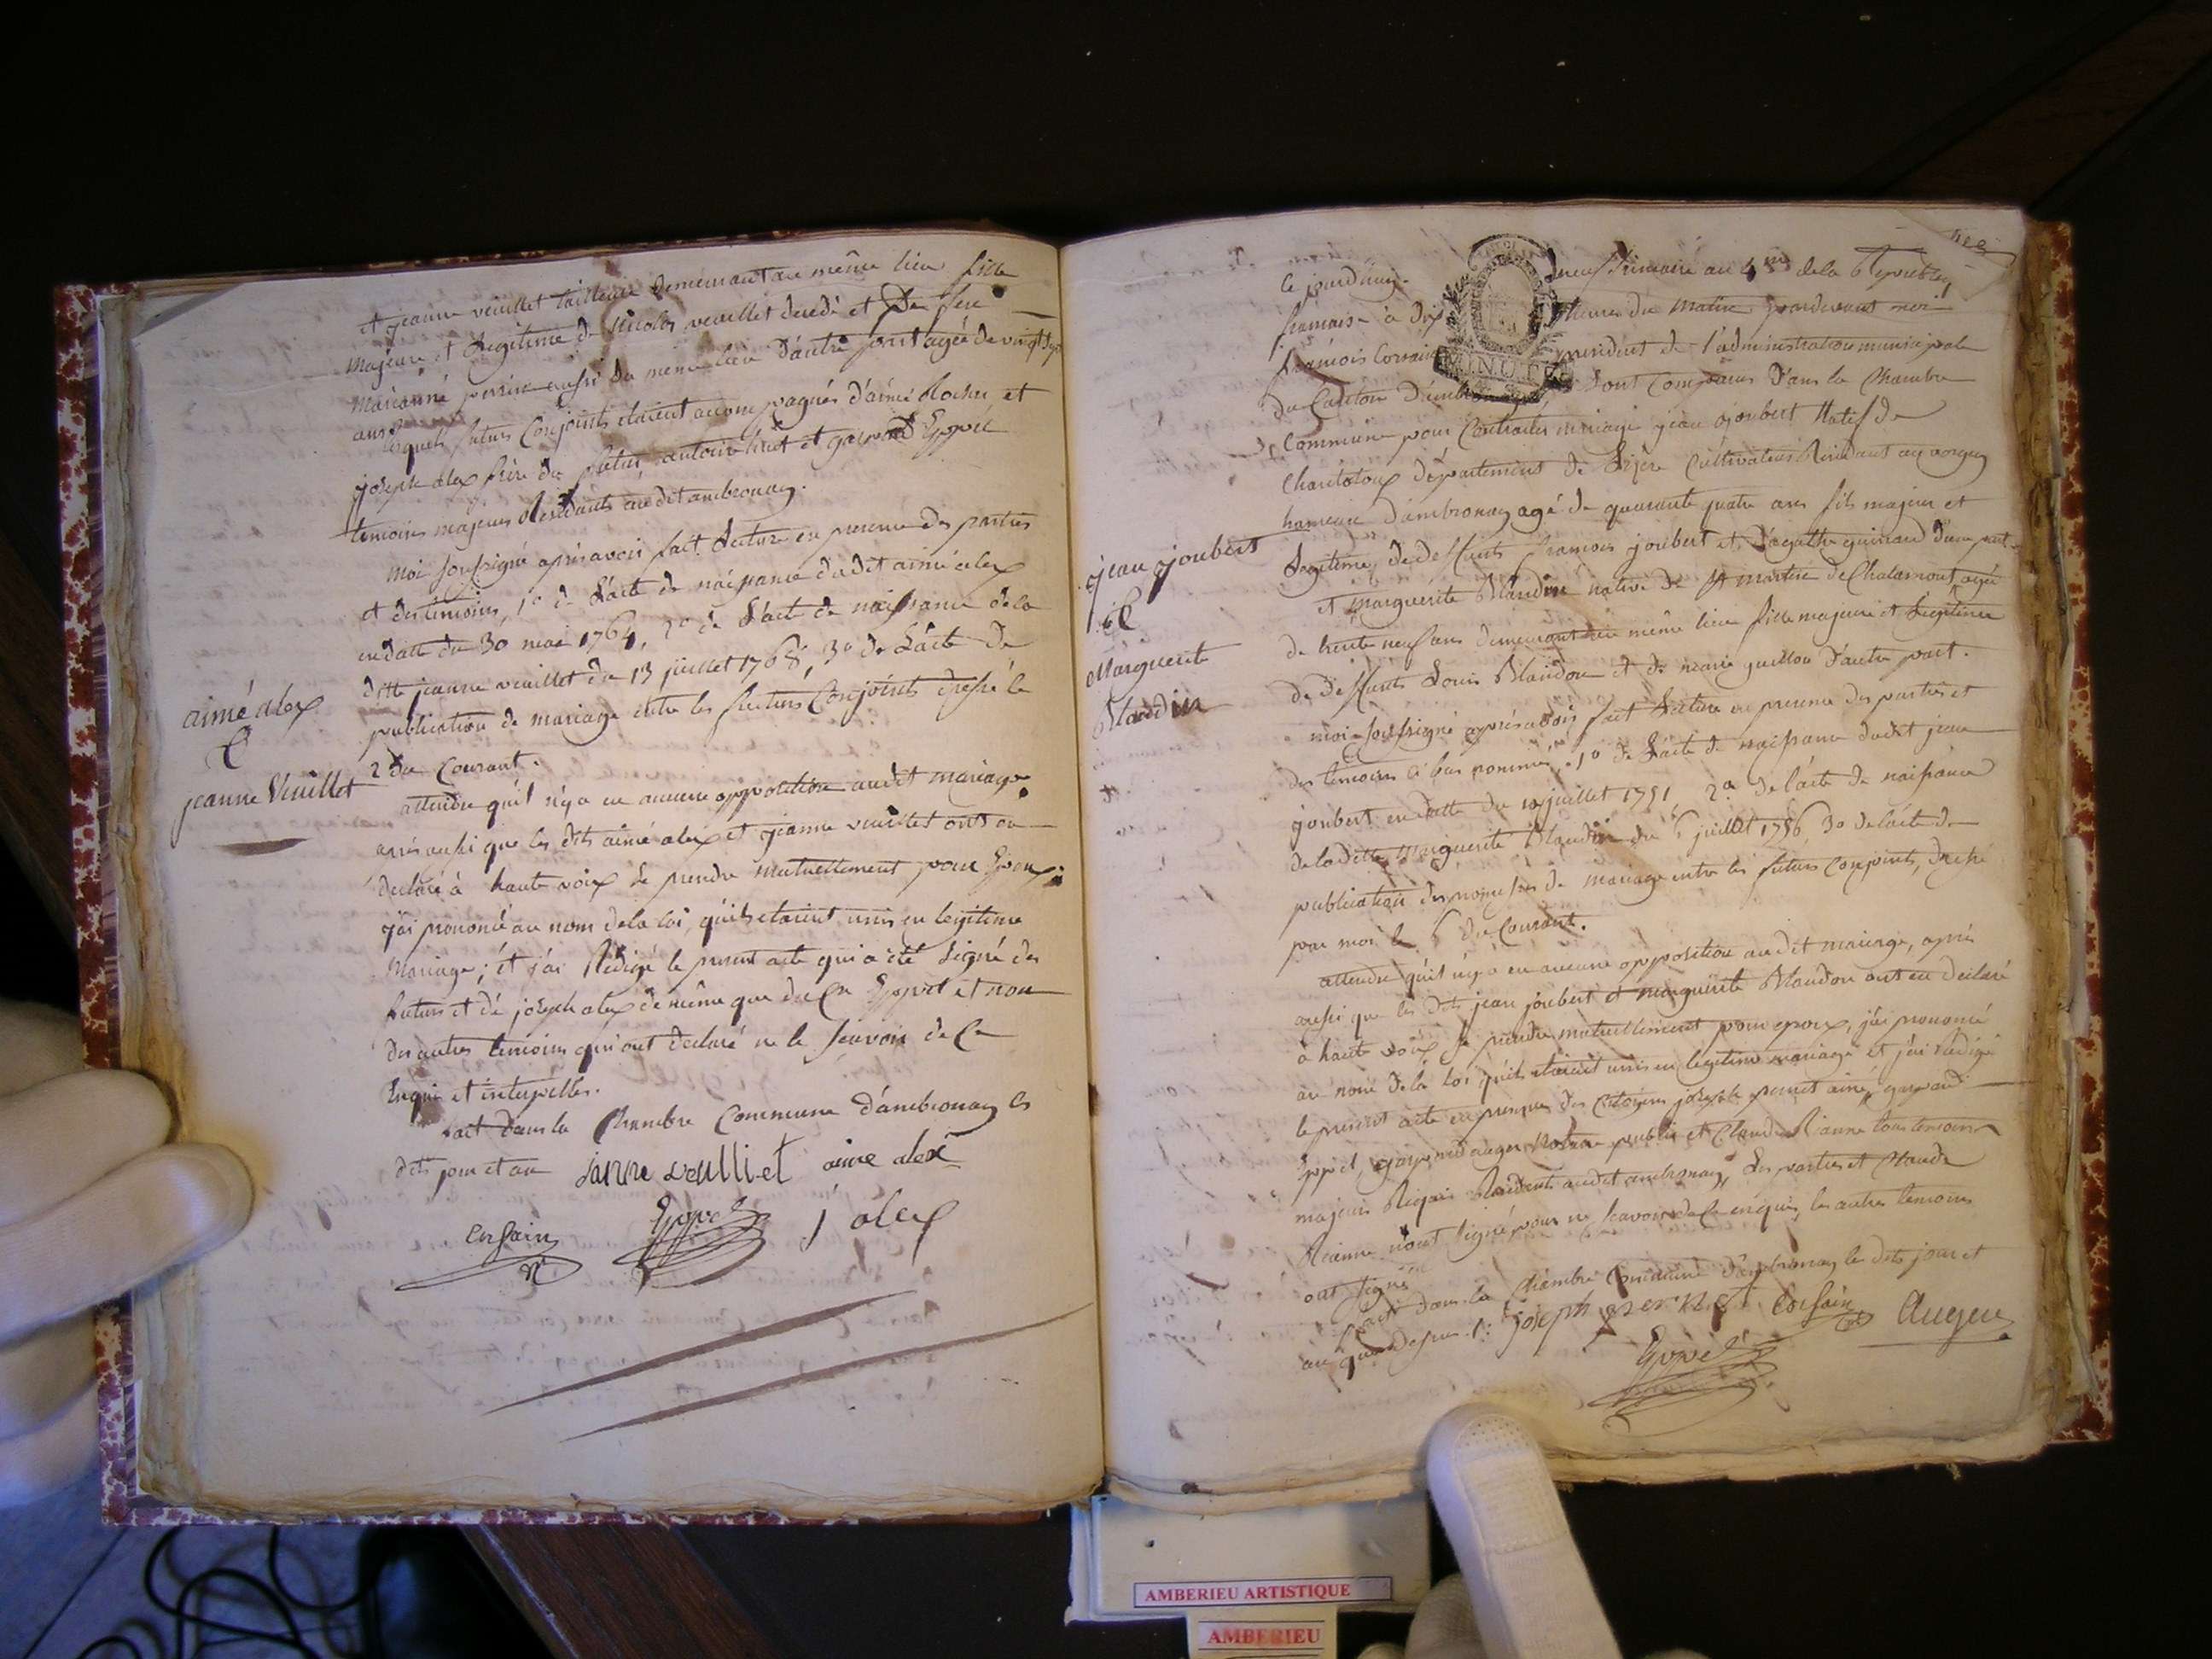 et jeanne veuillet tailleuse demeurant au même lieu fille
majeure et Legitime de Nicolas veuillet decedé et De feue
marianne perrine aussi du même lieu d'autre part agée de vingt sept
ans
lesquels futurs Conjoints etaient accompagnés d'aimé et
joseph alex frère du futur, antoine et gaspard Goppet
temoins majeurs Residants audit ambronay.
moi soussigné après avoir fait Lecture en presence des parties
et des temoins, 1° de L'acte de naissance dudit aimé alex
en datte du 30 mai 1764, 2° de L'acte de naissance de la
ditte jeanne veuillet du 13 juillet 1768, 3° de L'acte de
publication de mariage entre les futurs Conjoints dressé le
2 du Courant.
aimé alex
&
jeanne Veuillet
attendu qu'il n'y a eu aucune opposition audit mariage
après aussi que les dits aimé alex et jeanne veuillet ont eu
declaré à haute voix se prendre mutuellement pour Epoux
j'ai prononcé au nom de la loi, qu'ils etaient unis en legitime
mariage; et j'ai Redigé le present acte qui a été signé des
futurs et de joseph alex de même que du Cn Goppet et non
des autres temoins qui ont declaré ne le sçavoir de ce
Enquis et interpellés.
fait dans la Chambre Commune d'ambronay les
dits jour et an janne veulliet aime alex
Corsain Goppet j alex
Ce jourd'huy neuf frimaire an 4me de la Republique
francaise à dix heures du Matin pardevant moi
francois Corsain president de l'administration municipale
du Canton d'ambronay, sont Comparus Dans la Chambre
Commune pour Contracter mariage jean joubert Natif de
departement de Lizere Cultivateur Residant au
hameau d'ambronay agé de quarante quatre ans fils majeur et
Legitime de deffunts francois joubert et d'agathe guinard d'une part
et Marguerite Blandin native de St martin de Chalamont, agée
de trente neuf ans demeurant au même lieu fille majeure et Legitime
de deffunts Louis Blandon et de marie guillou d'autre part.
jean joubert
&
Marguerite
Blandin
moi soussigné après avoir fait Lecture en presence des parties et
des temoins ci bas nommés. 1° de L'acte de naissance dudit jean
joubert en datte du 10 juillet 1751 2° de l'acte de naissance
de la ditte Marguerite Blandin du 6 juillet 1756 3° de l'acte de
publication des promesses de mariage entre les futurs conjoints, dressé
par moi le 6 du Courant.
attendu qu'il n'y a eu aucune opposition audit mariage, après
aussi que les dits jean joubert et marguerite Blandon ont eu declaré
à haute voix se prendre mutuellement pour epoux, j'ai prononcé
au nom de la Loi qu'ils etaient unis en legitime mariage et j'ai redigé
le present acte en presence des citoyens joseph pernet ainé, gaspard
Goppet, gaspard auger Notaire public et Claude Rianne tous temoins
majeurs Requis Residents audit ambronay, Les parties et Claude
Rianne n'ont signé pour ne sçavoir de ce enquis, les autres temoins
ont signé
fait dans la Chambre Commune d'ambronay les dits jour et
an que dessus. joseph perNet Corsain Auger
Goppet
MINUTE
AMBERIEU ARTISTIQUE
AMBERIEU